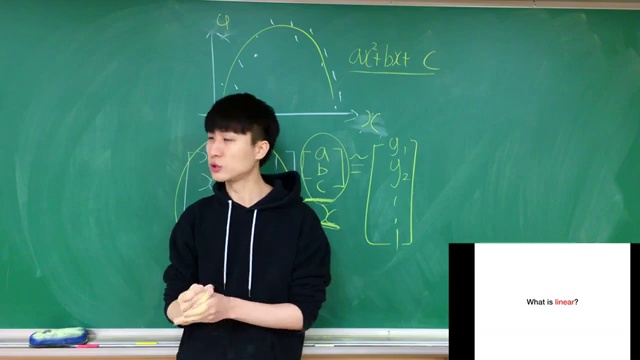 y
ax²+bx+ c
x
a
b
c
≃
y₁
y₂
x
What is linear?